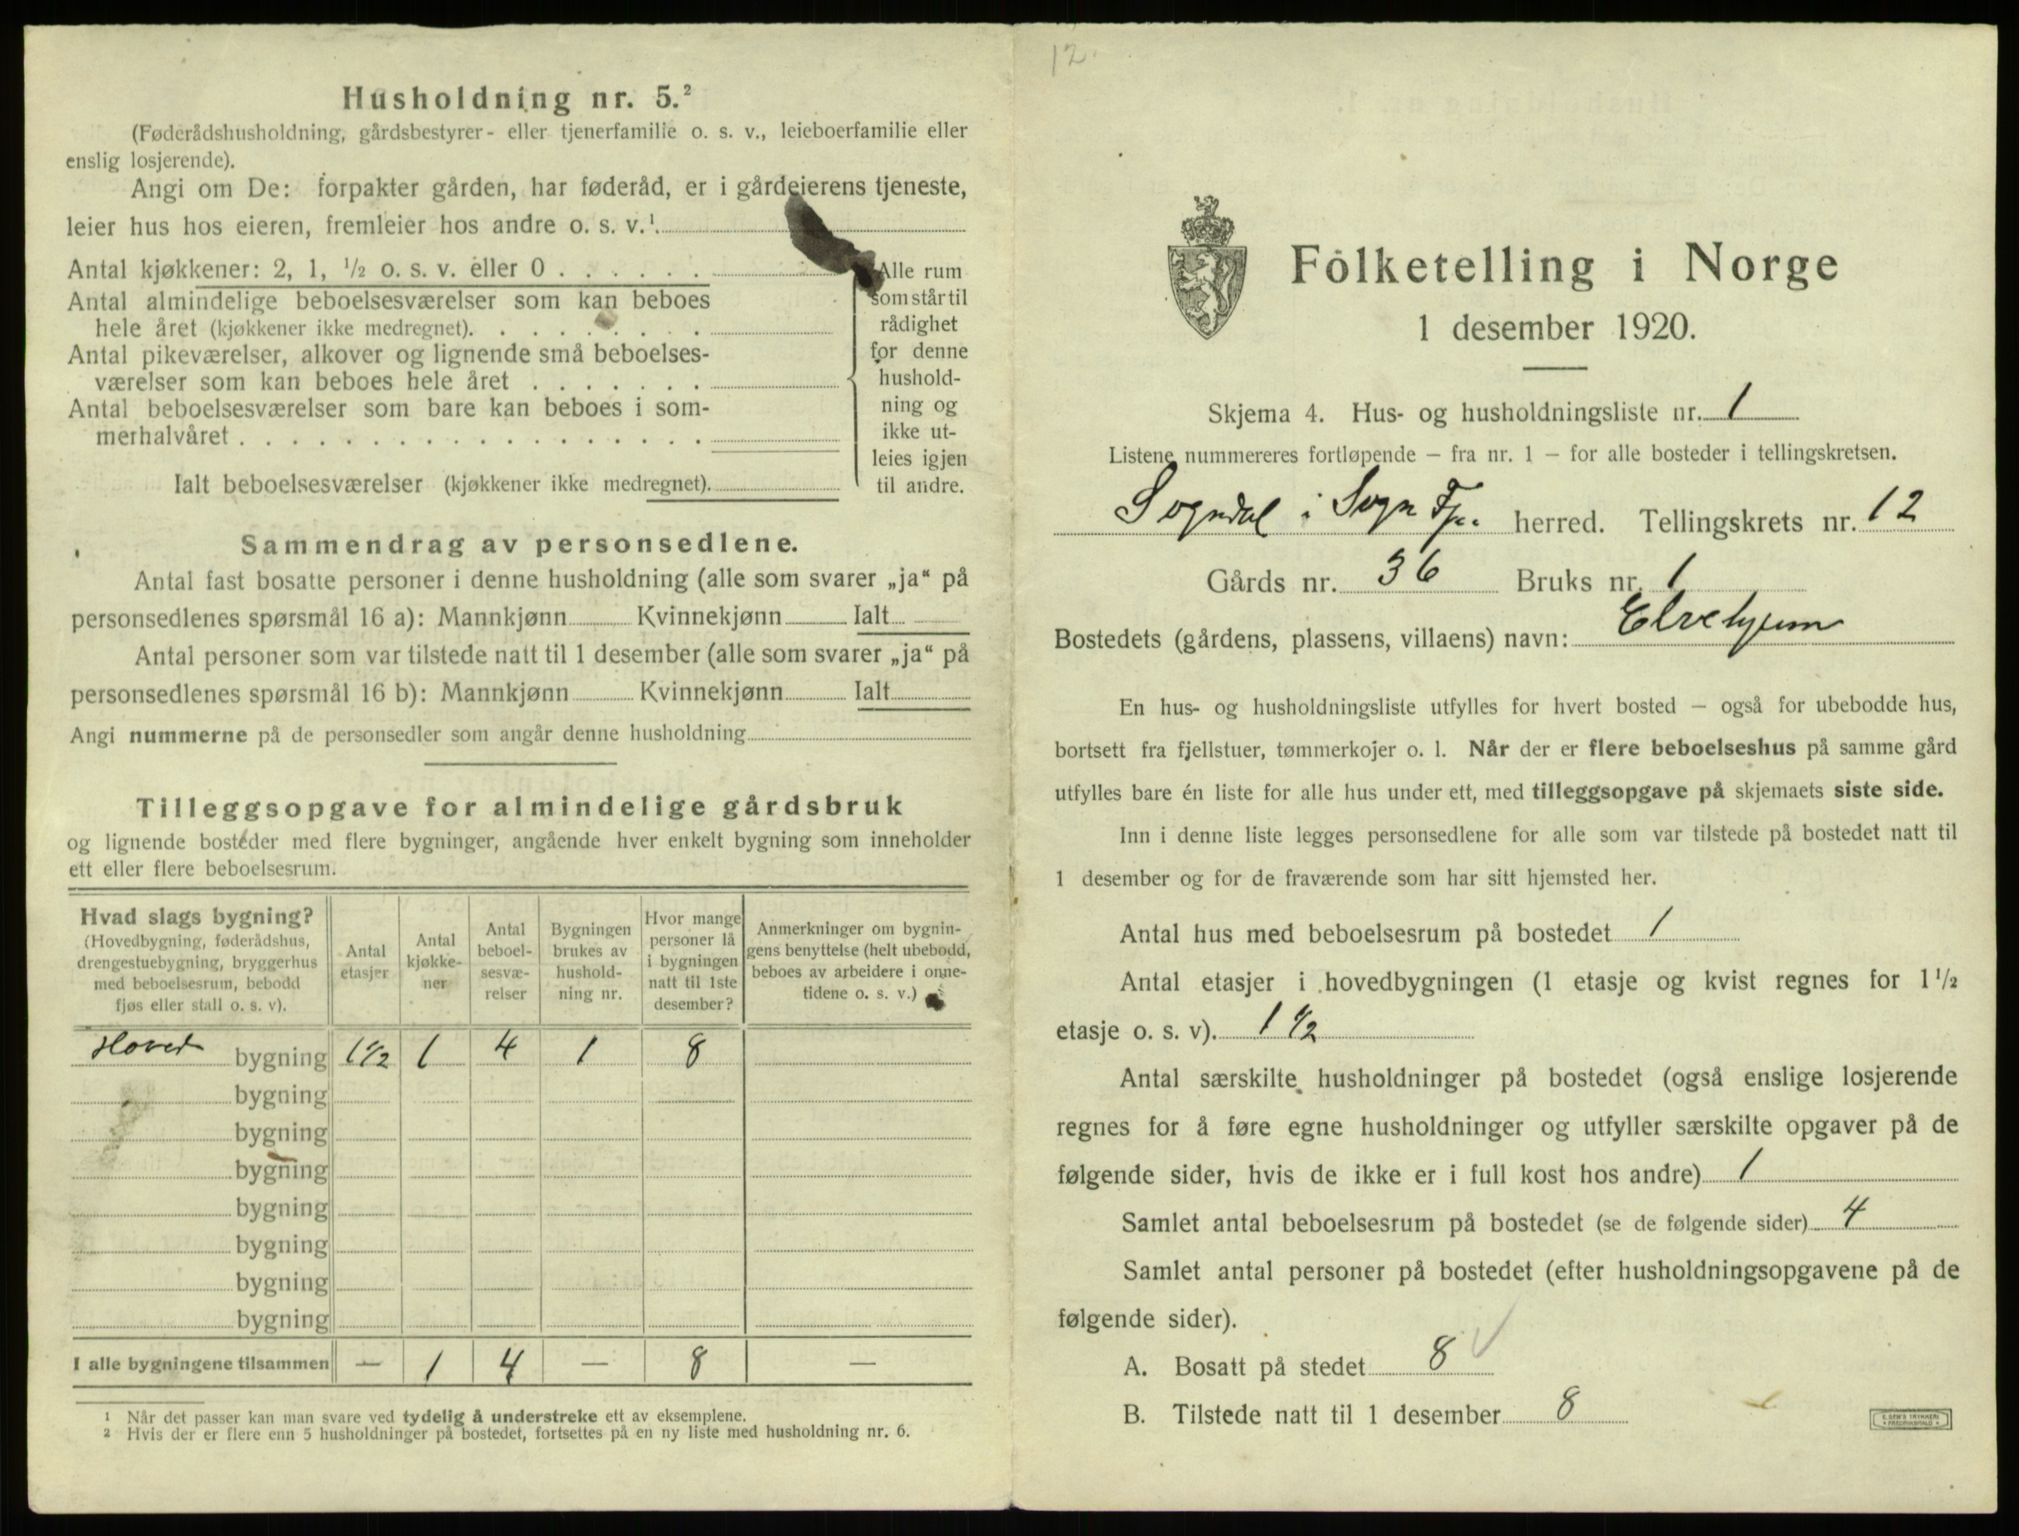 Husholdning nr. 5.²
(Føderådshusholdning, gårdsbestyrer- eller tjenerfamilie o. s. v., leieboerfamilie eller
enslig losjerende).
Angi om De: forpakter gården, har føderåd, er i gårdeierens tjeneste,
leier hus hos eieren, fremleier hos andre o. s. v.¹
Antal kjøkkener: 2, 1, ½ o. s. v. eller 0 . . . . . .
Antal almindelige beboelsesværelser som kan beboes
hele året (kjøkkener ikke medregnet). . . . . . . . .
Antal pikeværelser, alkover og lignende små beboelses-
værelser som kan beboes hele året . . . . . . .
Antal beboelsesværelser som bare kan beboes i som-
merhalvåret . . . . . . . . . . . . . . . . . .
Ialt beboelsesværelser (kjøkkener ikke medregnet).
Alle rum
som står til
rådighet
for denne
hushold-
ning og
ikke ut-
leies igjen
til andre.
Sammendrag av personsedlene.
Antal fast bosatte personer i denne husholdning (alle som svarer „ja“ på
personsedlenes spørsmål 16 a): Mannkjønn Kvinnekjønn Ialt
Antal personer som var tilstede natt til 1 desember (alle som svarer „ja“ på
personsedlenes spørsmål 16 b): Mannkjønn Kvinnekjønn Ialt
Angi nummerne på de personsedler som angår denne husholdning
Tilleggsopgave for almindelige gårdsbruk
og lignende bosteder med flere bygninger, angående hver enkelt bygning som inneholder
ett eller flere beboelsesrum.
Hvad slags bygning?
(Hovedbygning, føderådshus,
drengestuebygning, bryggerhus
med beboelsesrum, bebodd
fjøs eller stall o. s. v).
Antal
etasjer
Antal
kjøkke-
ner
Antal
beboel-
sesvæ-
relser
Bygningen
brukes av
hushold-
ning nr.
Hvor mange
personer lå
i bygningen
natt til 1ste
desember?
Anmerkninger om bygnin-
gens benyttelse (helt ubebodd,
beboes av arbeidere i onne-
tidene o. s. v.)
Hoved bygning 1½ 1 4 1 8
bygning
bygning
bygning
bygning
bygning
bygning
bygning
I alle bygningene tilsammen — 1 4 — 8 —
¹ Når det passer kan man svare ved tydelig å understreke ett av eksemplene.
² Hvis der er flere enn 5 husholdninger på bostedet, fortsettes på en ny liste med husholdning nr. 6.
12.
Folketelling i Norge
1 desember 1920.
Skjema 4. Hus- og husholdningsliste nr. 1
Listene nummereres fortløpende — fra nr. 1 — for alle bosteder i tellingskretsen.
Sogndal i Sogn Fj. herred. Tellingskrets nr. 12
Gårds nr. 36 Bruks nr. 1
Bostedets (gårdens, plassens, villaens) navn: Elvehjum
En hus- og husholdningsliste utfylles for hvert bosted — også for ubebodde hus,
bortsett fra fjellstuer, tømmerkojer o. l. Når der er flere beboelseshus på samme gård
utfylles bare én liste for alle hus under ett, med tilleggsopgave på skjemaets siste side.
Inn i denne liste legges personsedlene for alle som var tilstede på bostedet natt til
1 desember og for de fraværende som har sitt hjemsted her.
Antal hus med beboelsesrum på bostedet 1
Antal etasjer i hovedbygningen (1 etasje og kvist regnes for 1½
etasje o. s. v). 1½
Antal særskilte husholdninger på bostedet (også enslige losjerende
regnes for å føre egne husholdninger og utfyller særskilte opgaver på de
følgende sider, hvis de ikke er i full kost hos andre) 1
Samlet antal beboelsesrum på bostedet (se de følgende sider) 4
Samlet antal personer på bostedet (efter husholdningsopgavene på de
følgende sider).
A. Bosatt på stedet 8
B. Tilstede natt til 1 desember 8